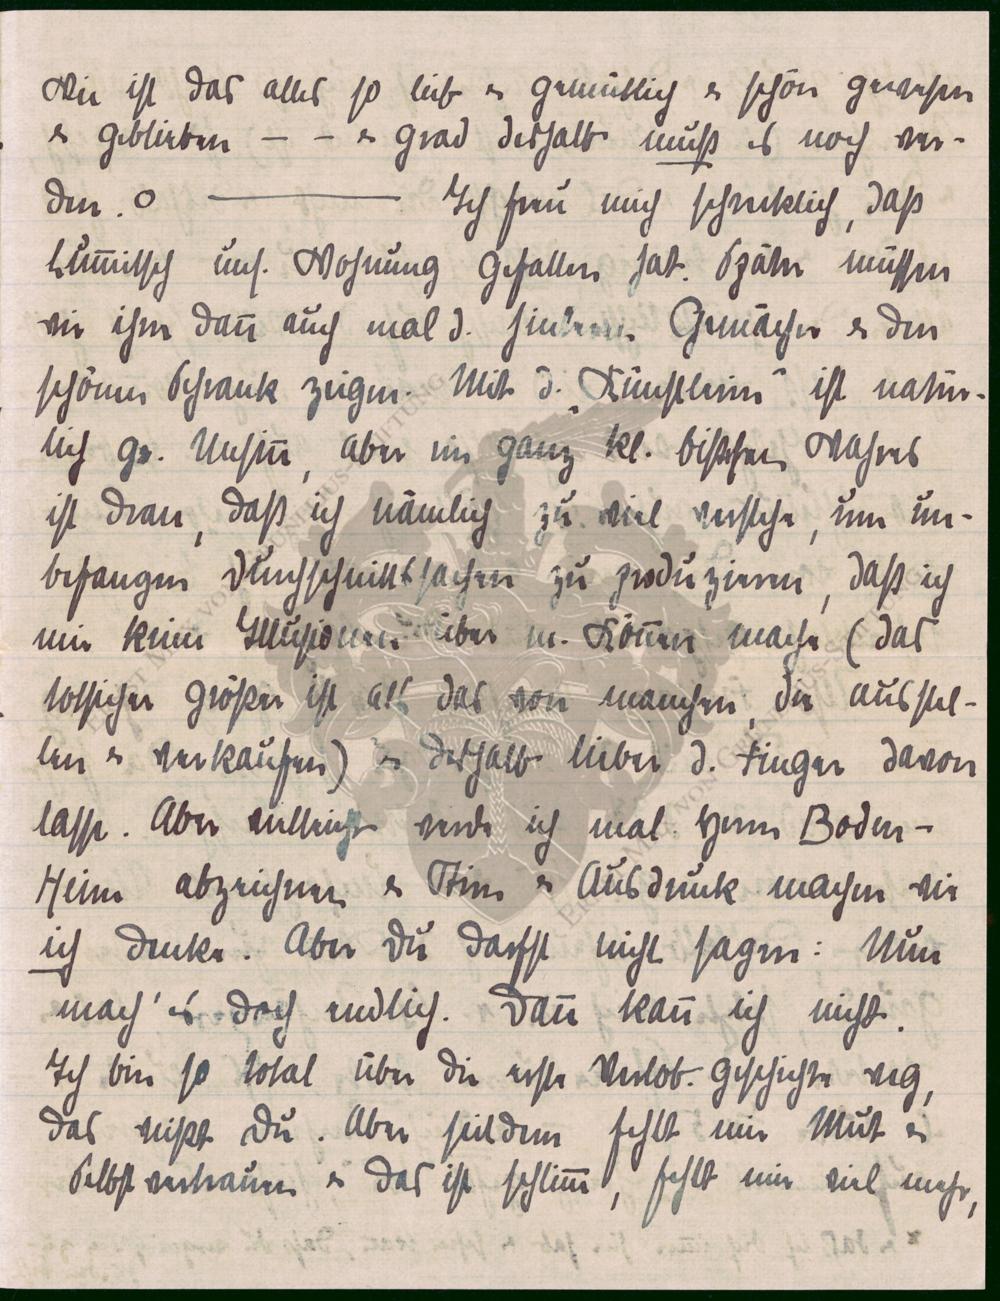 Wie ist das alles so lieb & gemütlich & schön gewesen
& geblieben — — & grad deshalb muß es noch wer-
den. O ——— Ich freu mich schrecklich, daß
uns. Wohnung gefallen hat. Später müssen
wir ihm dan̄ auch mal d. hinteren Gemächer & den
schönen Schrank zeigen. Mit d. „Künstlerin“ ist natür-
lich gr. Unsin̄, aber ein ganz kl. bißchen Wahres
ist dran, daß ich nämlich zu viel verstehe, um un-
befangen Durchschnittssachen zu produzieren, daß ich
mir keine Illusionen über m. Kön̄en mache (das
totsicher größer ist als das von manchen, die ausstel-
len & verkaufen) & deshalb lieber d. Finger davon
lasse. Aber vielleicht werde ich mal Herrn Boden-
Heim abzeichnen & Stirn & Ausdruck machen wie
ich denke. Aber Du darfst nicht sagen: Nun
mach' es doch endlich. Dan̄ kan̄ ich nicht.
Ich bin so total über die erste Verlob. geschichte weg,
das weißt Du. Aber seitdem fehlt mir Mut &
Selbstvertrauen & das ist schlim̄, fehlt mir viel mehr,